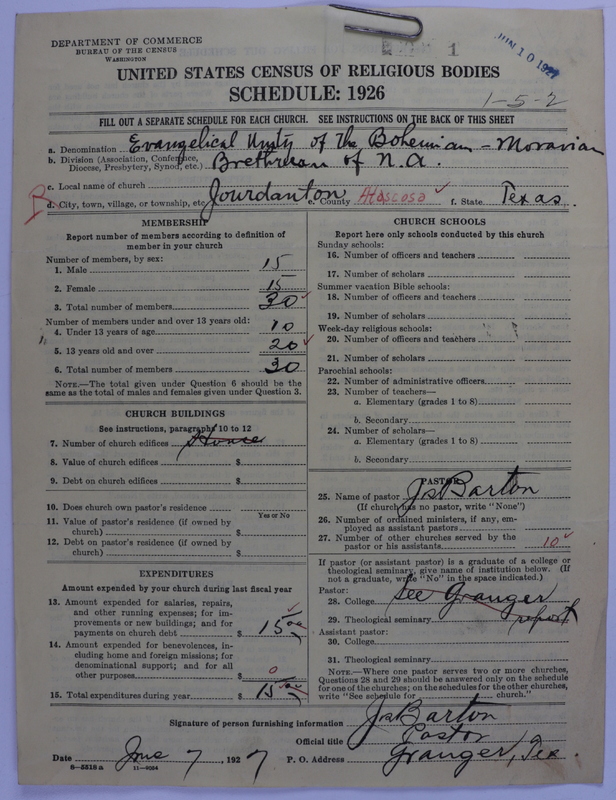 DEPARTMENT OF COMMERCE
BUREAU OF THE CENSUS
WASHINGTON
1
JUN 10 1927
UNITED STATES CENSUS OF RELIGIOUS BODIES
SCHEDULE: 1926
1-5-2
FILL OUT A SEPARATE SCHEDULE FOR EACH CHURCH. SEE INSTRUCTIONS ON THE BACK OF THIS SHEET
a. Denomination Evangelical Unity of the Bohemian-Moravian
b. Division (Association, Conference, Diocese, Presbytery, Synod, etc.) Brethren of N.A.
c. Local name of church
d. City, town, village, or township, etc. Jourdanton e. County Atascosa f. State Texas.
MEMBERSHIP
Report number of members according to definition of
member in your church
Number of members, by sex:
1. Male 15
2. Female 15
3. Total number of members 30
Number of members under and over 13 years old:
4. Under 13 years of age 10
5. 13 years old and over 20
6. Total number of members 30
NOTE.—The total given under Question 6 should be the
same as the total of males and females given under Question 3.
CHURCH BUILDINGS
See instructions, paragraphs 10 to 12
7. Number of church edifices
8. Value of church edifices $
9. Debt on church edifices $
10. Does church own pastor's residence
Yes or No
11. Value of pastor's residence (if owned by
church) $
12. Debt on pastor's residence (if owned by
church) $
EXPENDITURES
Amount expended by your church during last fiscal year
13. Amount expended for salaries, repairs,
and other running expenses; for im-
provements or new buildings; and for
payments on church debt $ 15 00
14. Amount expended for benevolences, in-
cluding home and foreign missions; for
denominational support; and for all
other purposes $ 0
15. Total expenditures during year $ 15 00
CHURCH SCHOOLS
Report here only schools conducted by this church
Sunday schools:
16. Number of officers and teachers
17. Number of scholars
Summer vacation Bible schools:
18. Number of officers and teachers
19. Number of scholars
Week-day religious schools:
20. Number of officers and teachers
21. Number of scholars
Parochial schools:
22. Number of administrative officers
23. Number of teachers—
a. Elementary (grades 1 to 8)
b. Secondary
24. Number of scholars—
a. Elementary (grades 1 to 8)
b. Secondary
PASTOR
25. Name of pastor Js Barton
(If church has no pastor, write "None")
26. Number of ordained ministers, if any, em-
ployed as assistant pastors
27. Number of other churches served by the
pastor or his assistants 10
If pastor (or assistant pastor) is a graduate of a college or
theological seminary, give name of institution below. (If
not a graduate, write "No" in the space indicated.)
Pastor:
28. College See Granger
29. Theological seminary report
Assistant pastor:
30. College
31. Theological seminary
NOTE.—Where one pastor serves two or more churches,
Questions 28 and 29 should be answered only on the schedule
for one of the churches; on the schedules for the other churches,
write "See schedule for church."
Signature of person furnishing information Js Barton
Official title Pastor
Date June 7, 1927 P. O. Address Granger, Tex.
8-5518 a 11-9054